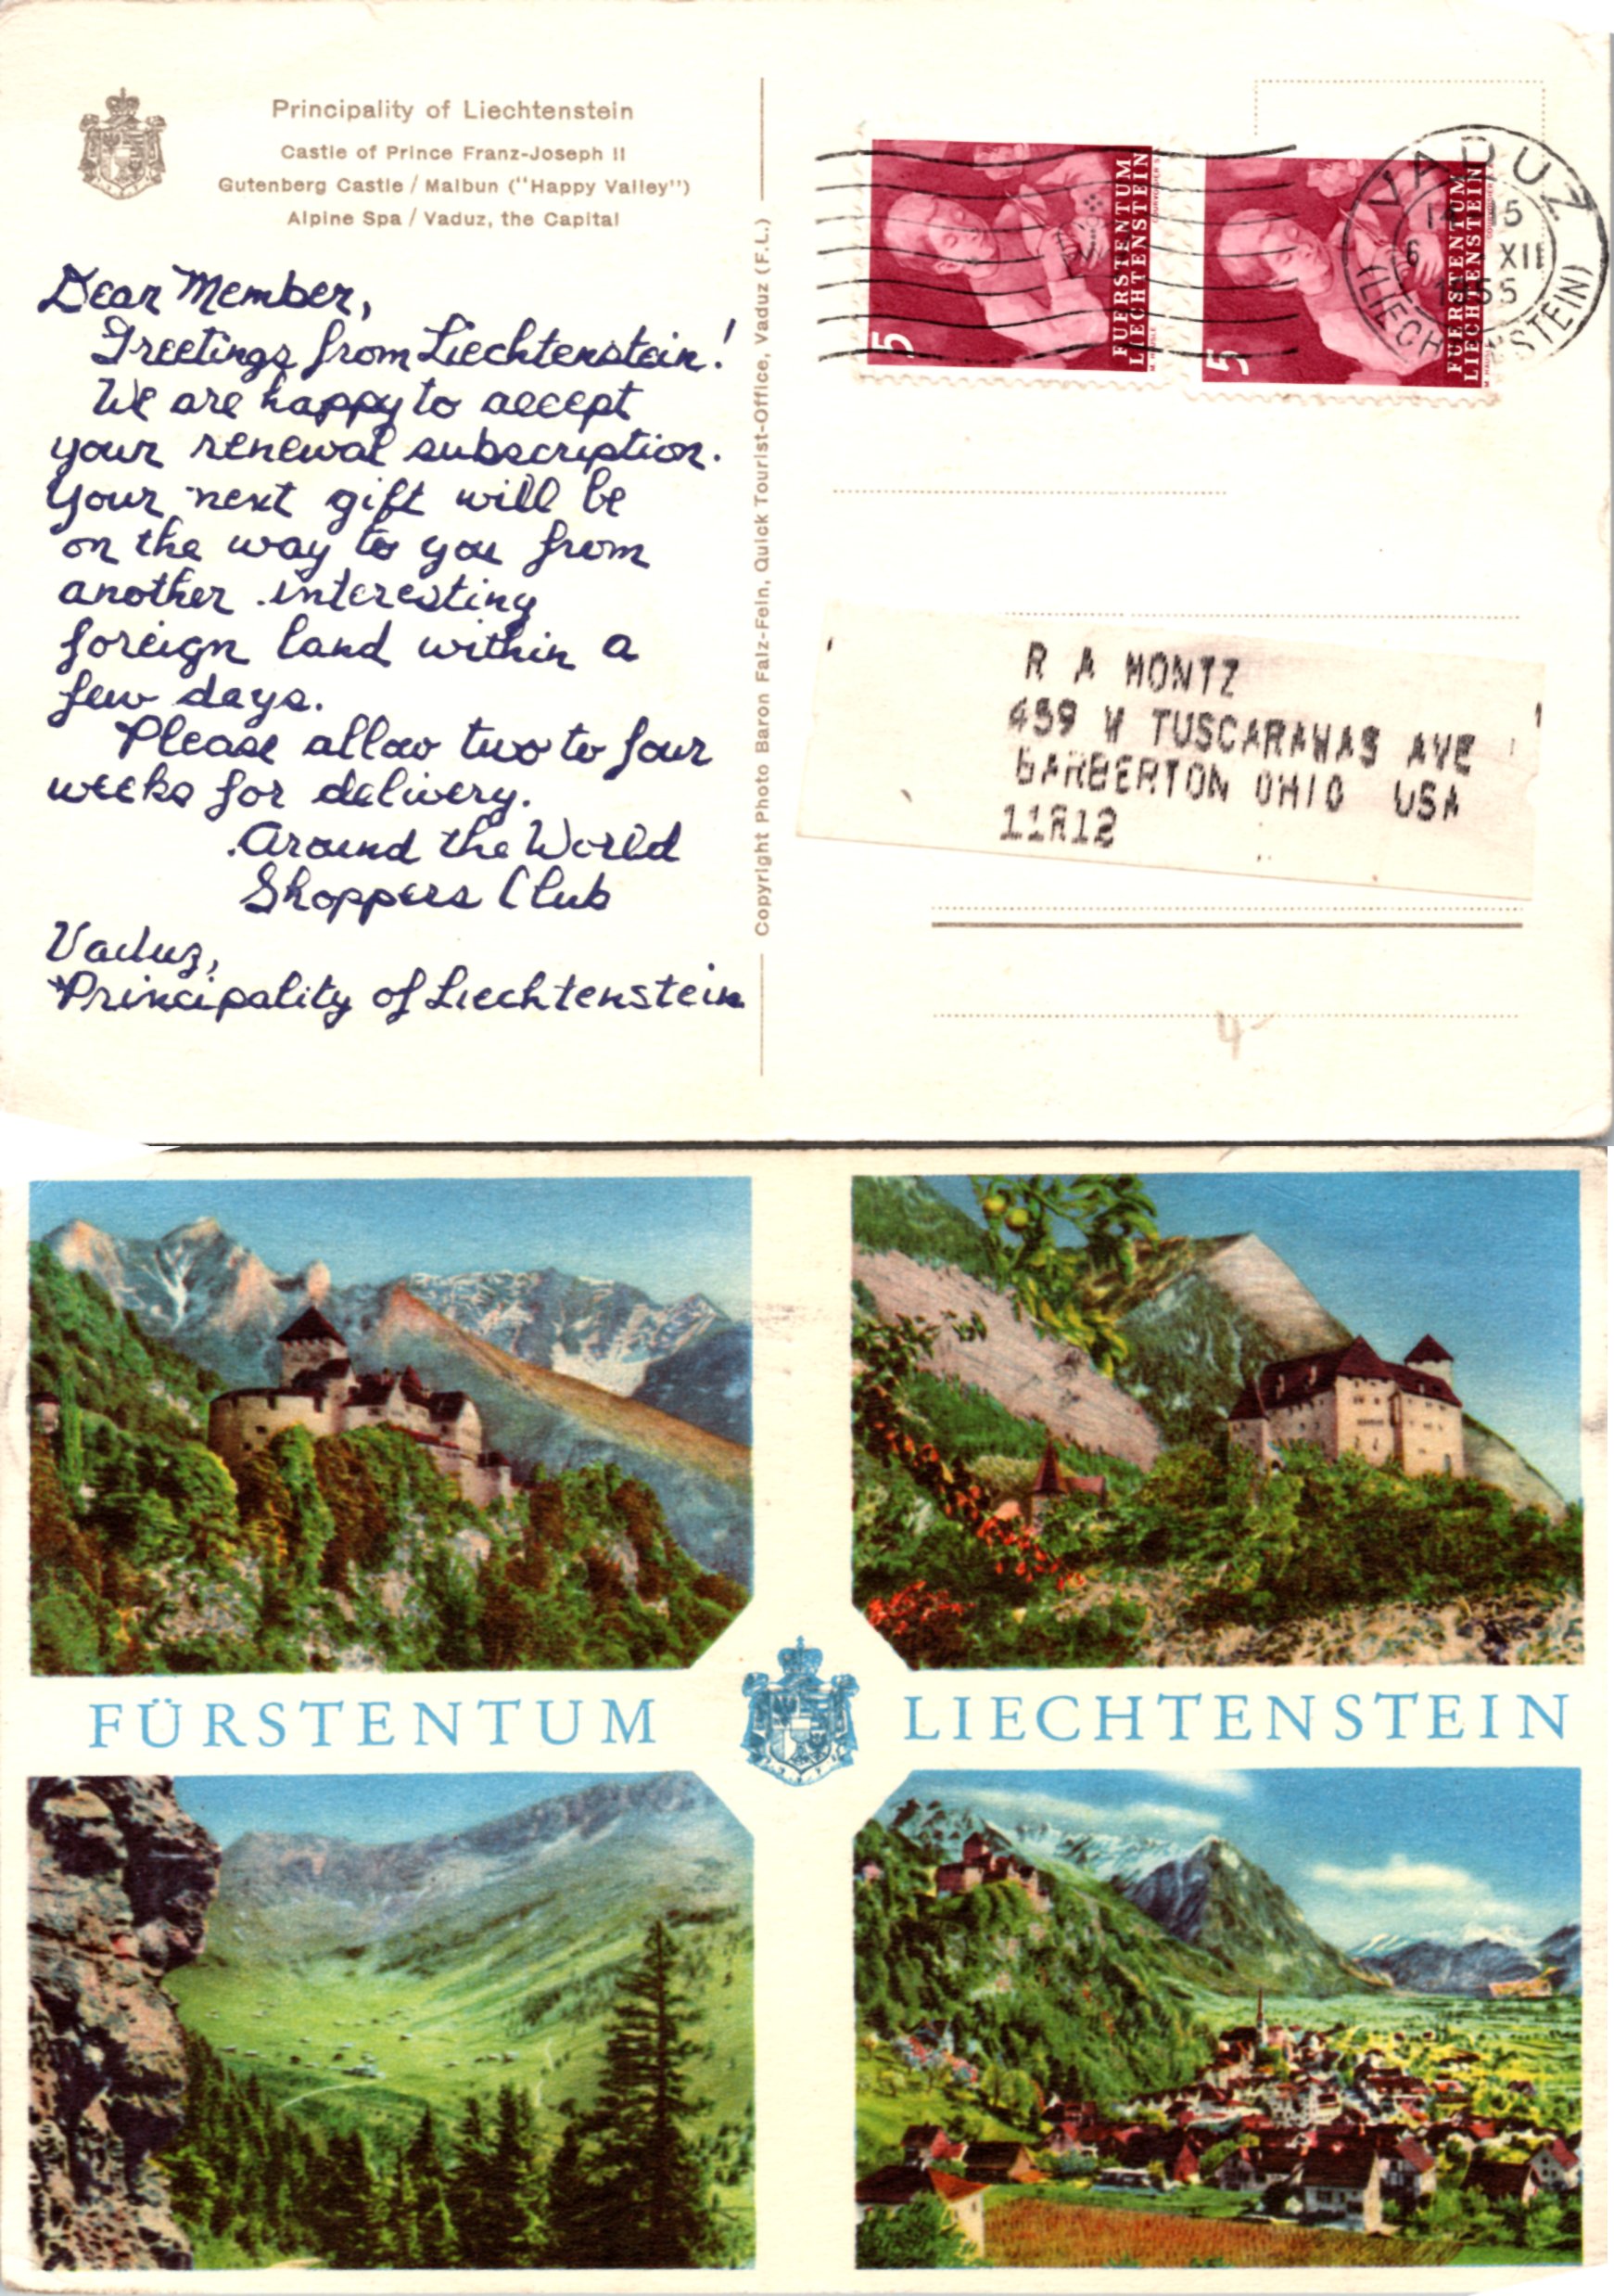 Principality of Liechtenstein
Castle of Prince Franz-Joseph II
Gutenberg Castle / Malbun ("Happy Valley")
Alpine Spa / Vaduz, the Capital
Dear Member,
Greetings from Liechtenstein!
We are happy to accept
your renewal subscription.
Your next gift will be
on the way to you from
another interesting
foreign land within a
few days.
Please allow two to four
weeks for delivery.
Around the World
Shoppers Club
Vaduz,
Principality of Liechtenstein
Copyright Photo Baron Falz-Fein, Quick Tourist-Office, Vaduz (F.L.)
5
FUERSTENTUM
LIECHTENSTEIN
M. HÄUSLE
COURVOISIER S.
5
FUERSTENTUM
LIECHTENSTEIN
M. HÄUSLE
VADUZ
6 XII
(LIECHTENSTEIN)
R A MONTZ
459 W TUSCARAWAS AVE
BARBERTON OHIO USA
11R12
4-
FÜRSTENTUM LIECHTENSTEIN